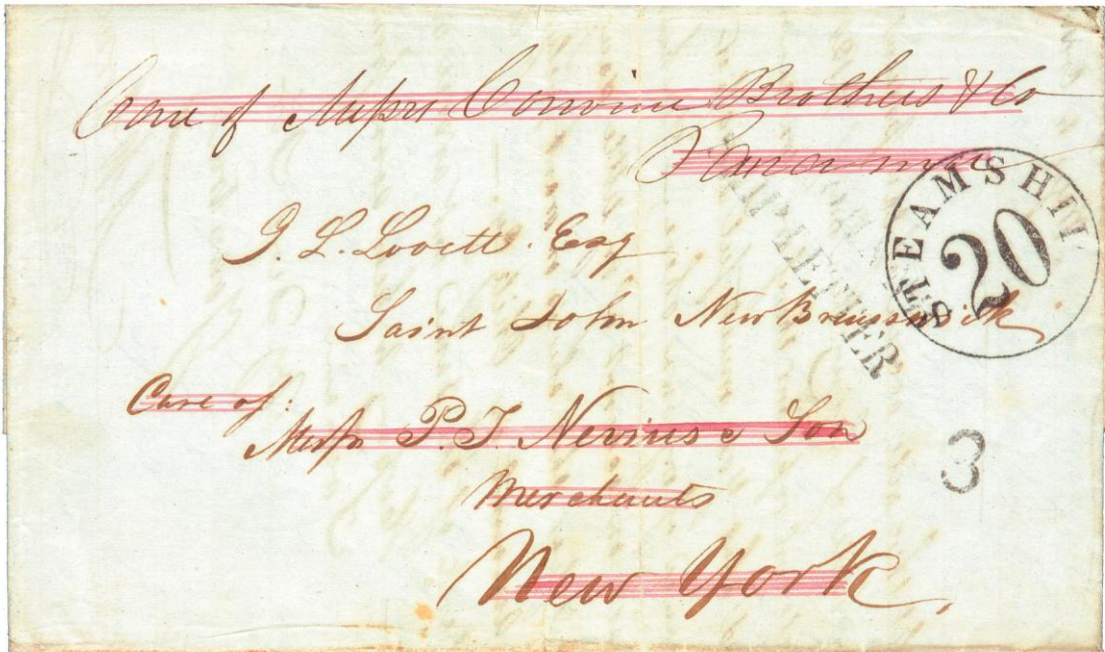 Care of Messrs Corwine Brothers & Co
Panama
STEAMSHIP
20
SHIP LETTER
J. L. Lovett Esq
Saint John New Brunswick
Care of:
Messrs P. J. Nevius & Son
3
Merchants
New York,